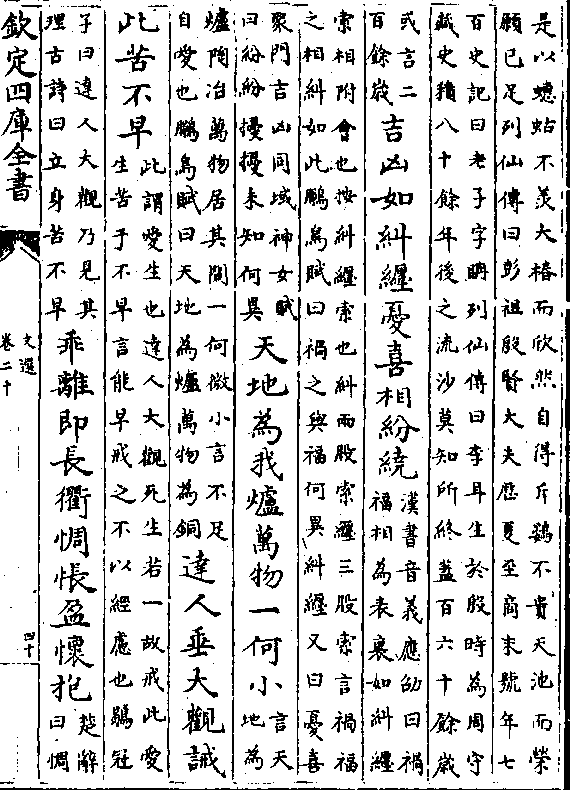 是以蟪蛄不羨大椿而欣然自得斥鷃不貴天池而榮
願已足列仙傳曰彭祖殷賢大夫歷夏至商末號年七
百史記曰老子字耼列仙傳曰李耳生於殷時為周守
藏史積八十餘年後之流沙莫知所終蓋百六十餘歲
或言二
百餘歲
吉凶如糾纆憂喜相紛繞
漢書音義應劭曰禍
福相為表裏如糾纆
索相附會也按糾纆索也糾兩股索纆三股索言禍福
之相糾如此鵩鳥賦曰禍之與福何異糾纆又曰憂喜
聚門吉凶同域神女賦
曰紛紛擾擾未知何異
天地為我爐萬物一何小
言天
地為
爐陶冶萬物居其間一何微小言不足
自愛也鵩鳥賦曰天地為爐萬物為銅
達人垂大觀誡
此苦不早
此謂愛生也達人大觀死生若一故戒此愛
生苦于不早言能早戒之不以經慮也鶡冠
子曰達人大觀乃見其
理古詩曰立身苦不早
乖離即長衢惆悵盈懷抱
楚辭
曰惆
欽定四庫全書
文選
卷二十
四十